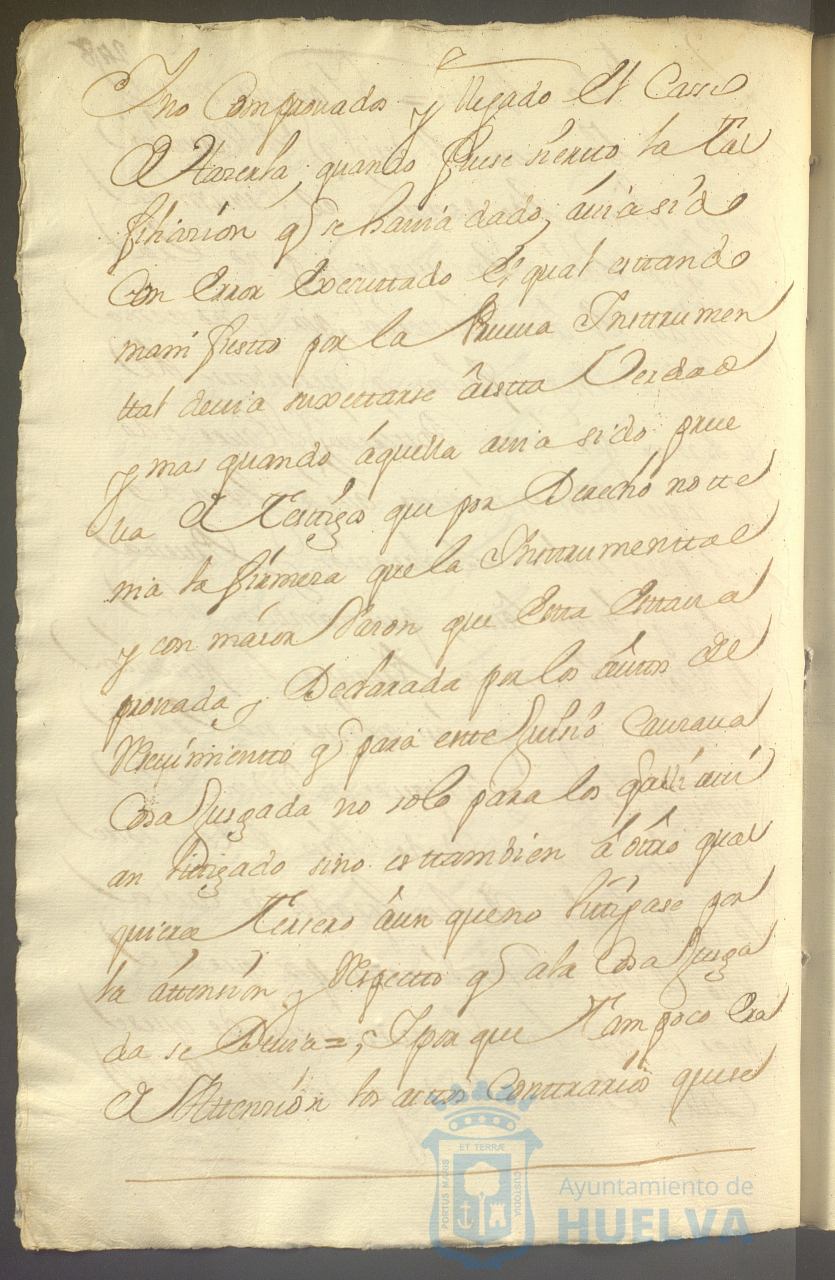 Y no Comprouados y llegado El Casso
De Hazerla, quando fuese sierto la Cali
ficazion q se hauia dado, auia sido
Con Error Executtado El qual esttando
manifiestto por la Prueua Insttrumen
ttal deuia suxettarse áestta Verdad
y mas quando áquella auia sido prue
ua De Testtigos que por Derecho no tte
nia la firmeza que la Insttrumenttal
y con máior Razon que Estta Esttaua
prouada y Declarada por los áuttos De
Reziuimientto q para estte Juisio Causaua
Cosa Jusgada no solo para los q alli aui
an littigado sino es ttambien á ottro qual
quiera Tersero áun que no littigase por
la áttension y Respectto q a la Cosa Jusga
da se Deuia =, Y por que Tampoco Era
De Attension los acttos Conttrarios que se
ET TERRÆ
PORTUS MARIS
CUSTODIA
Ayuntamiento de
HUELVA